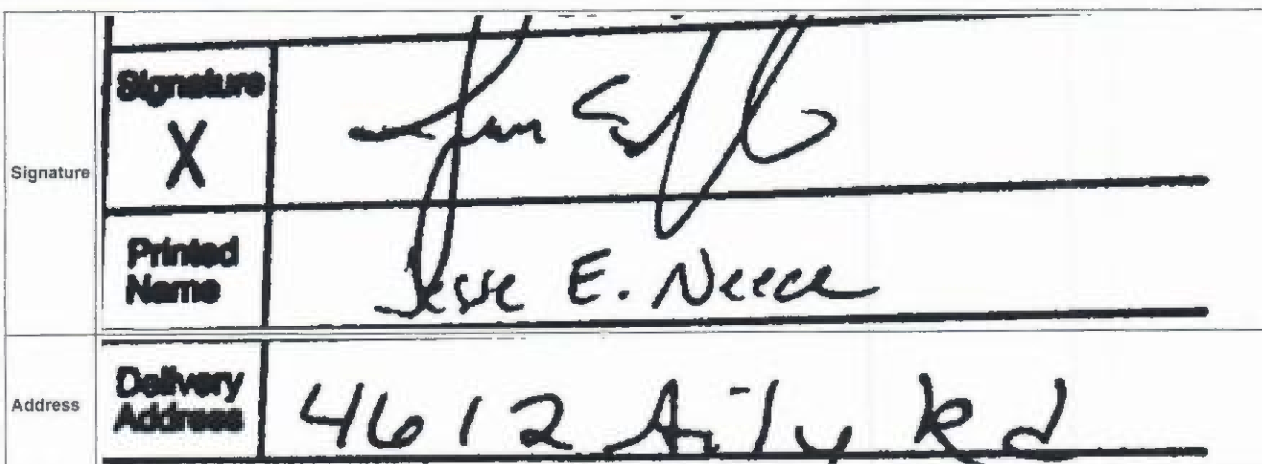 Signature
Signature
X
Printed Name
Jesse E. Neece
Address
Delivery Address
4612 Aily Rd